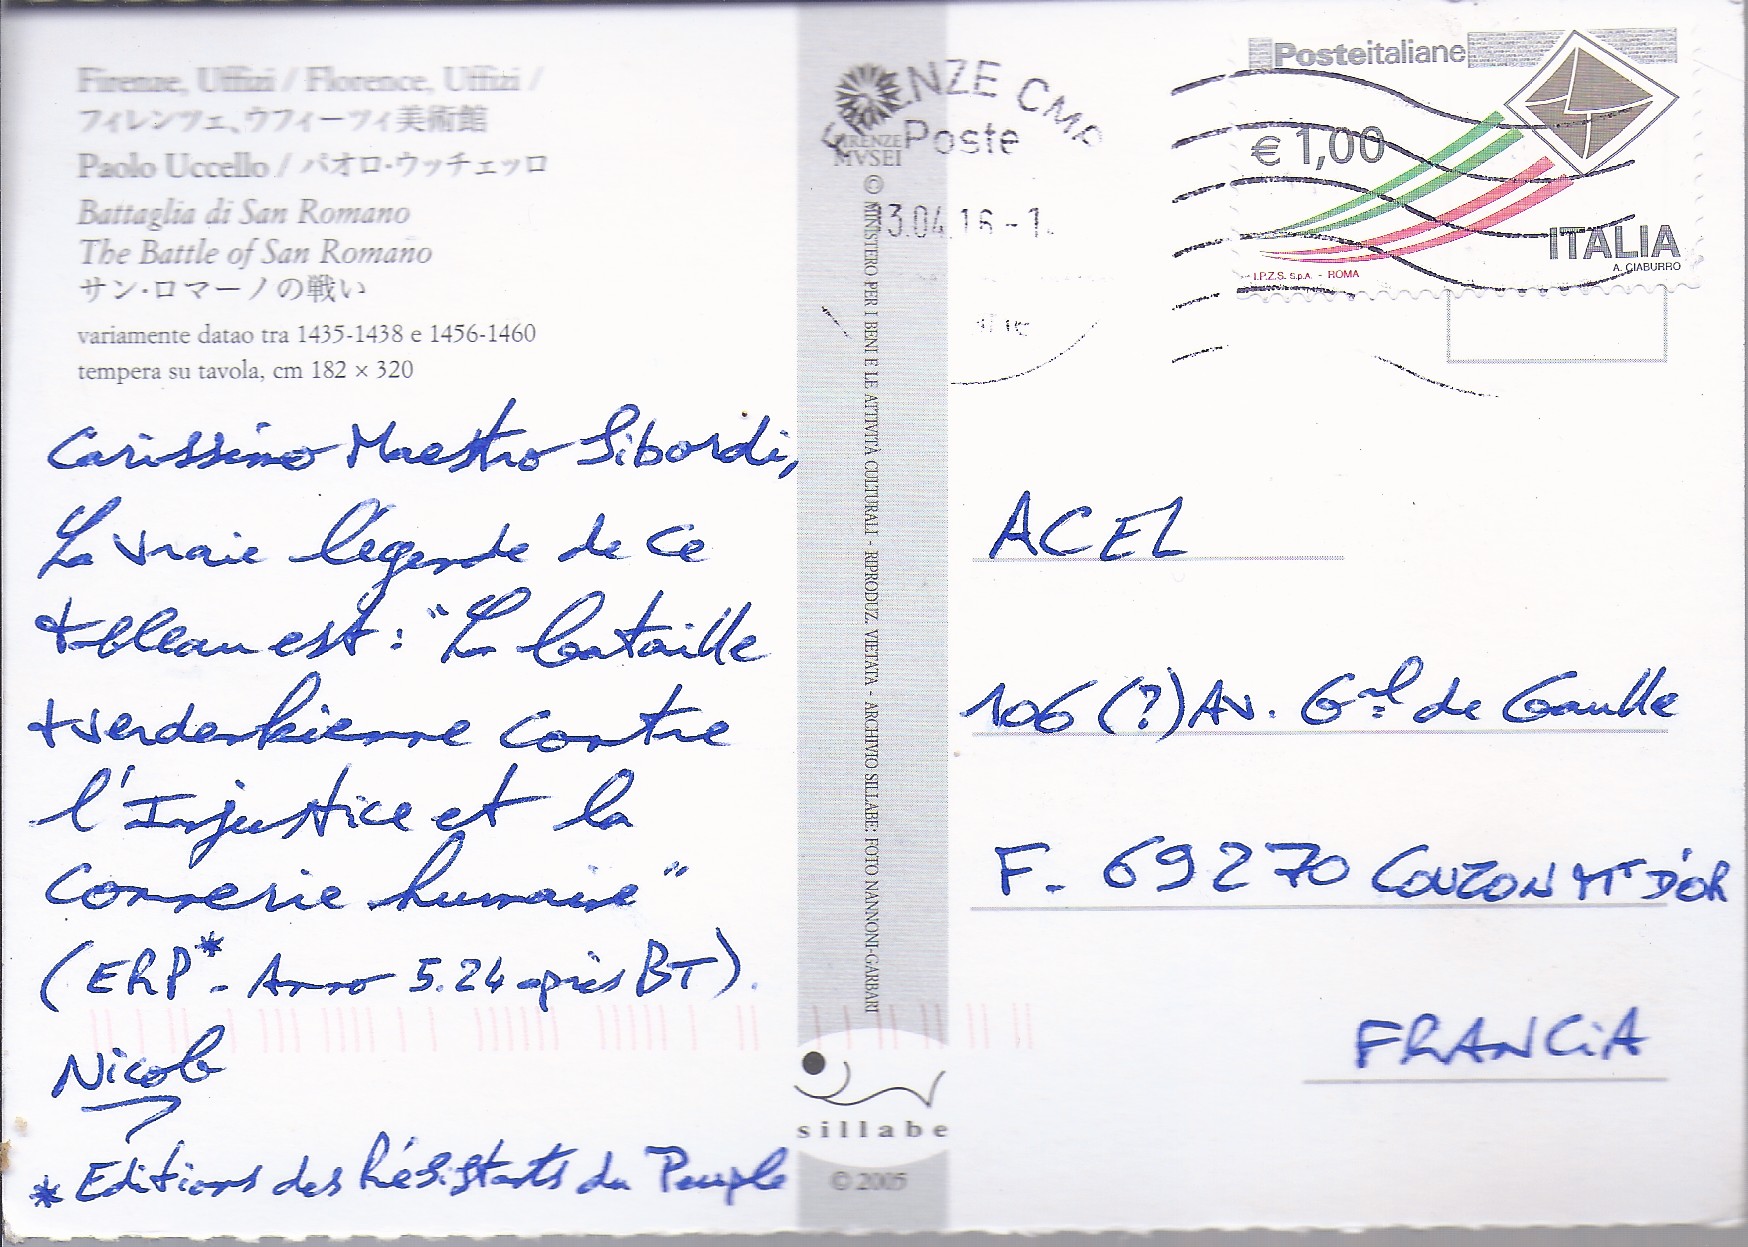 Firenze, Uffizi / Florence, Uffizi /
フィレンツェ、ウフィーツィ美術館
Paolo Uccello / パオロ・ウッチェッロ
Battaglia di San Romano
The Battle of San Romano
サン・ロマーノの戦い
variamente datao tra 1435-1438 e 1456-1460
tempera su tavola, cm 182 × 320
Carissimo Maestro Sibordi,
La vraie légende de ce
tableau est : "La bataille
contre
l'Injustice et la
connerie humaine"
(ERP* - Anno 5.24 après BT).
Nicole
* Editions des Résistants du Peuple
FIRENZE
MVSEI
© MINISTERO PER I BENI E LE ATTIVITÀ CULTURALI - RIPRODUZ. VIETATA - ARCHIVIO SILLABE: FOTO NANNONI-GARBARI
sillabe
© 2005
NZE CMP
Poste
3.04.16 - 1
Posteitaliane
€ 1,00
ITALIA
A. CIABURRO
I.P.Z.S. S.p.A. - ROMA
ACEL
106 (?) Av. Gal de Gaulle
F. 69270 COUZON Mt D'OR
FRANCiA